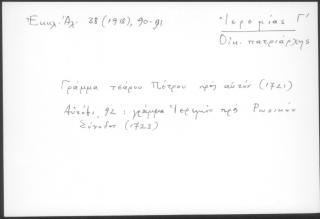 Ἐκκλ. Ἀλ. 38 (1918), 90-91
Ἱερεμίας Γ'
Οἰκ. πατριάρχης
Γράμμα τσάρου Πέτρου πρὸς αὐτὸν (1721)
Αὐτόθι, 92 : γράμμα Ἱερεμίου πρὸς Ρωσικὴν
Σύνοδον (1723)